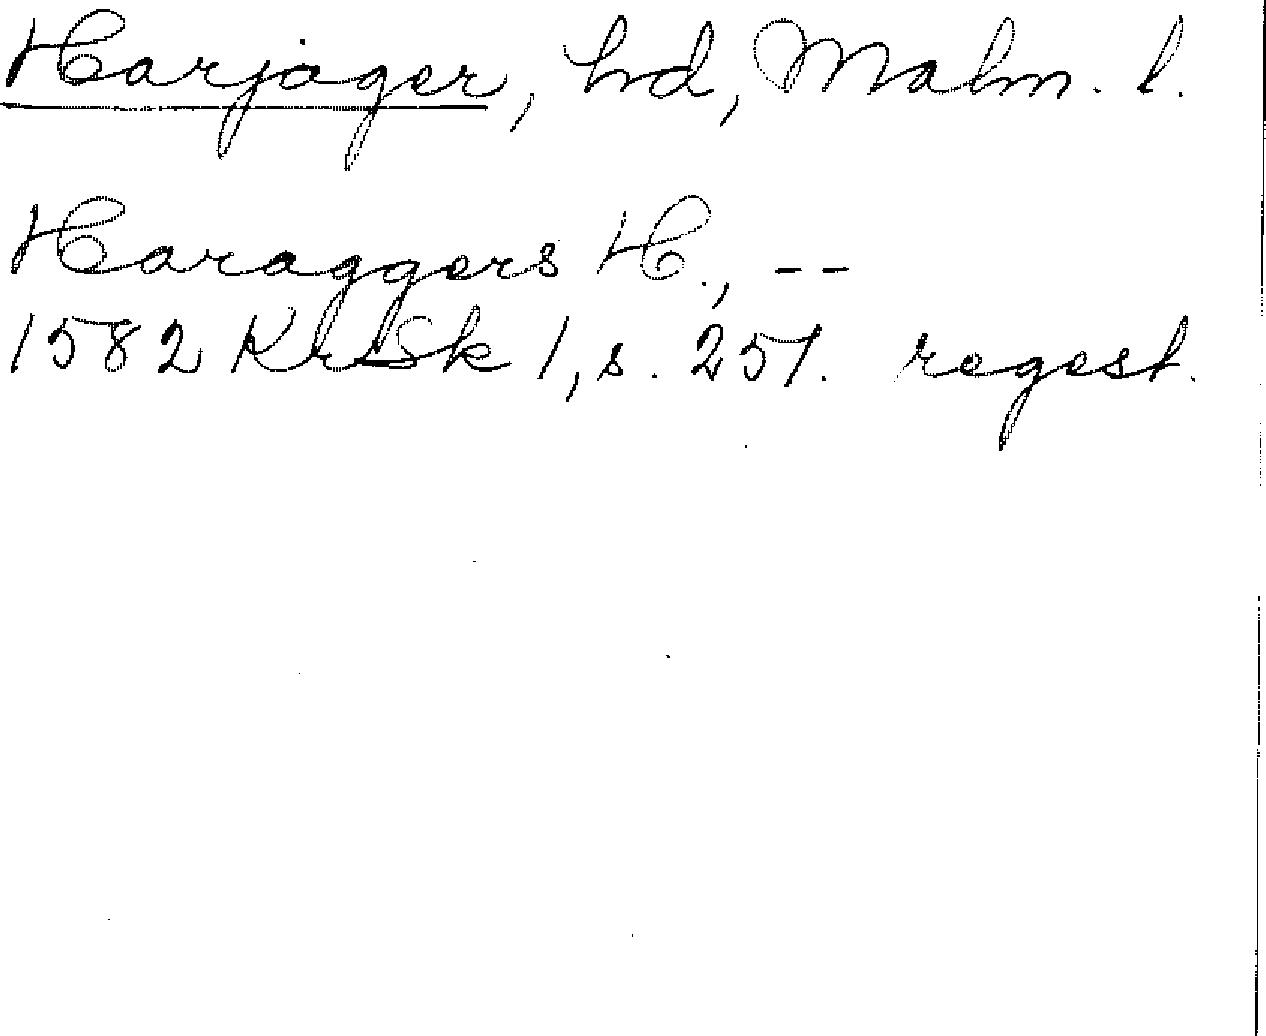 Harjager, hd, Malm. l.
Haraggers H., --
1582 KrSk 1, s. 251. regest.